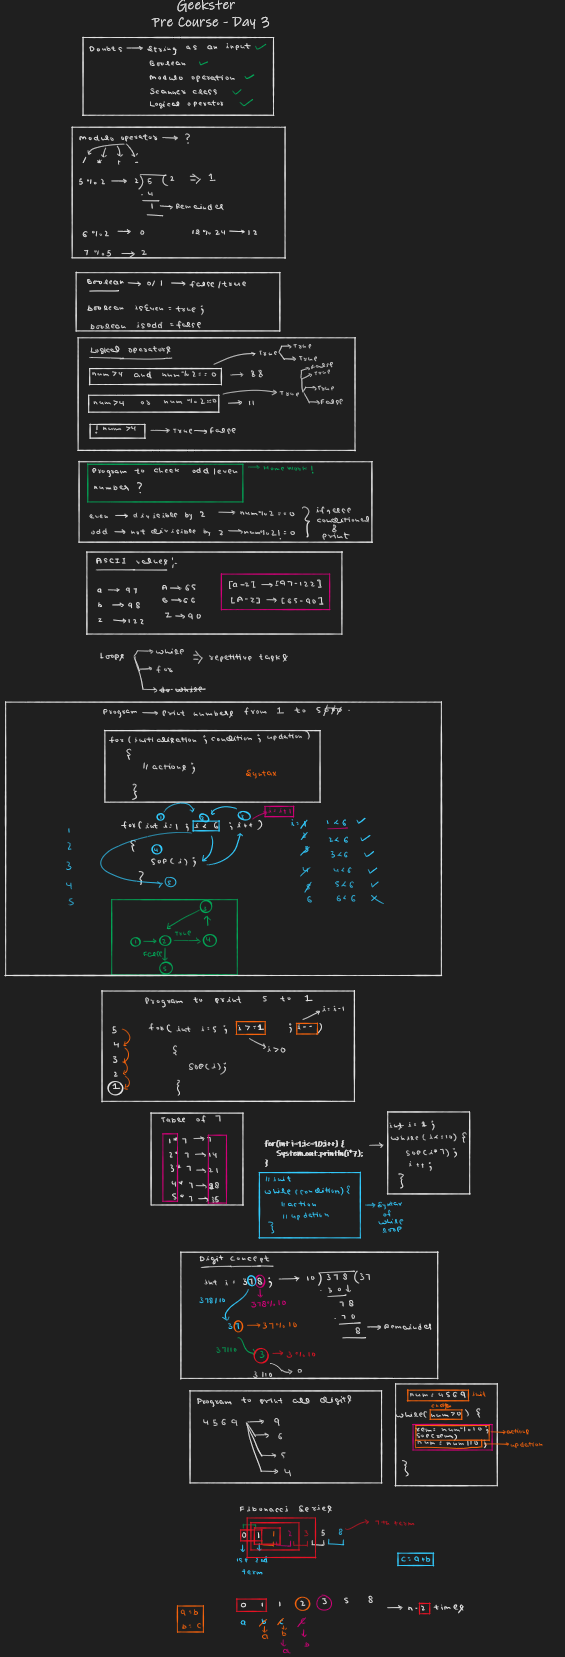 Geekster
Pre Course - Day 3
Doubts → String as an input ✓
Boolean ✓
Modulo operation ✓
Scanner class ✓
Logical operator ✓
modulo operator → ?
/ * + -
5 % 2 → 2) 5 (2 ⇒ 1
4
1 → Remainder
6 % 2 → 0
12 % 24 → 12
7 % 5 → 2
Boolean → 0/1 → false/true
boolean isEven = true;
boolean isodd = false
Logical operators
num>4 and num%2==0 → 88
→ True → True
→ True
num>4 or num%2==0 → 11
→ True → False
True
True
False
! num>4 → True → False
Program to check odd/even → Home work!
number ?
even → divisible by 2 → num%2==0
odd → not divisible by 2 → num%2!=0
if else
conditional
&
print
ASCII values:-
a → 97 A → 65 [a-z] → [97-122]
b → 98 B → 66 [A-Z] → [65-90]
z → 122 Z → 90
Loops → while ⇒ repetitive tasks
→ for
→ do-while
Program → print numbers from 1 to 5
for(initialization; condition; updation)
{
// actions;
Syntax
}
i=i+1
for(int i=1; i<6; i++)
{
SOP(i);
}
1
2
3
4
5
i=1 1<6 ✓
2 2<6 ✓
3 3<6 ✓
4 4<6 ✓
5 5<6 ✓
6 6<6 ✗
1 → 2 True → 4
False
5
Program to print 5 to 1
i=i-1
for(int i=5; i>=1 ; i--)
i>0
{
SOP(i);
}
5
4
3
2
1
Table of 7
1* 7 → 7
2* 7 → 14
3* 7 → 21
4* 7 → 28
5* 7 → 35
for(int i=1;i<=10;i++) {
System.out.println(i*7);
}
int i = 1;
while(i<=10) {
SOP(i*7);
i++;
}
// init
while(condition){
// action
// updation
}
→ Syntax
of
while
loop
Digit Concept
int i = 378; → 10) 378 (37
378/10
378%10
30
78
70
8 → Remainder
37 → 37%10
37/10
3 → 3%10
3/10 → 0
Program to print all digits
4569 → 9
→ 6
→ 5
→ 4
num=4569 init
cond
while(num>0) {
rem=num%10;
SOP(rem) → action
num=num/10; → updation
}
Fibonacci Series
0 1 1 2 3 5 8
7th term
1st 2nd
term
c=a+b
a=b
b=c
0 1 1 2 3 5 8 → n-2 times
a b c
a b
a